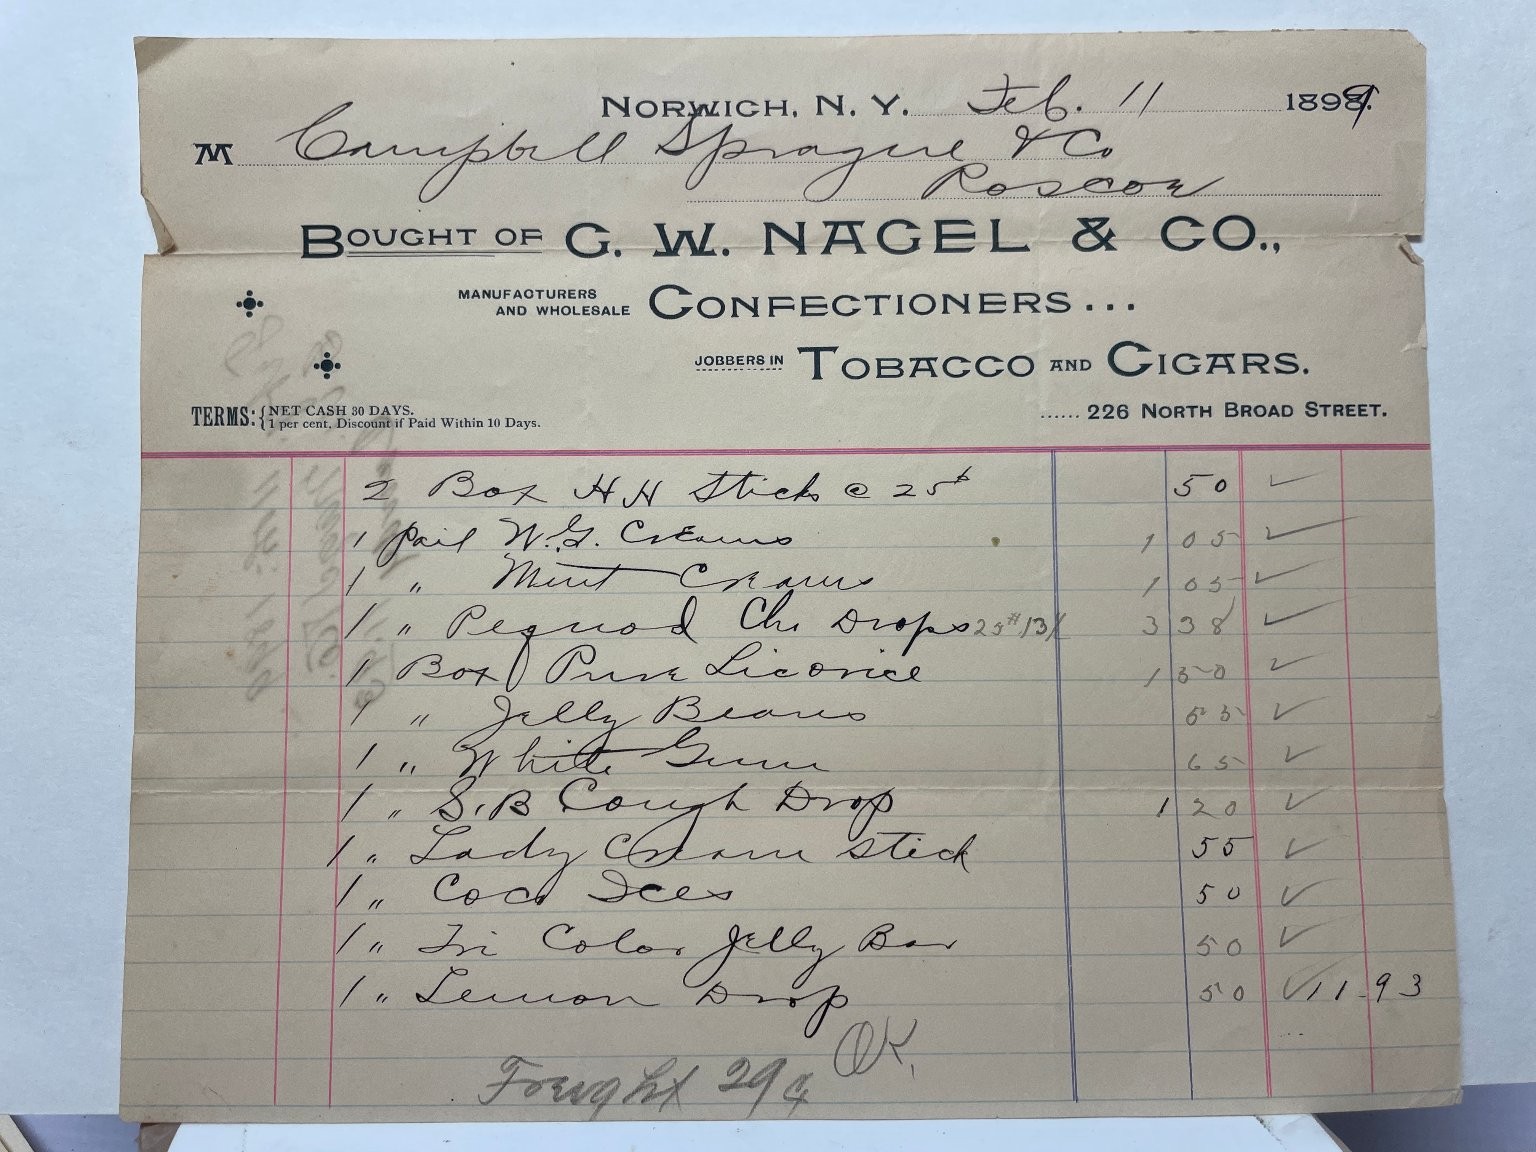 NORWICH, N. Y. Feb. 11 1899.
M Campbell Sprague & Co
Roscoe
BOUGHT OF G. W. NAGEL & CO.,
MANUFACTURERS AND WHOLESALE CONFECTIONERS...
JOBBERS IN TOBACCO AND CIGARS.
TERMS: { NET CASH 30 DAYS.
1 per cent. Discount if Paid Within 10 Days.
...... 226 NORTH BROAD STREET.
2 Box HH Sticks @ 25¢ 50 ✓
1 pail W.G. Creams 1 05 ✓
1 " Mint Creams 1 05 ✓
1 " Pequod Cho Drops 25# 13½ 3 38 ✓
1 Box Pure Licorice 1 50 ✓
1 " Jelly Beans 55 ✓
1 " White Gum 65 ✓
1 " S.B Cough Drop 1 20 ✓
1 " Lady Cream Stick 55 ✓
1 " Coco Ices 50 ✓
1 " Tri Color Jelly Bar 50 ✓
1 " Lemon Drop 50 ✓ 11.93
OK.
Freight 29¢